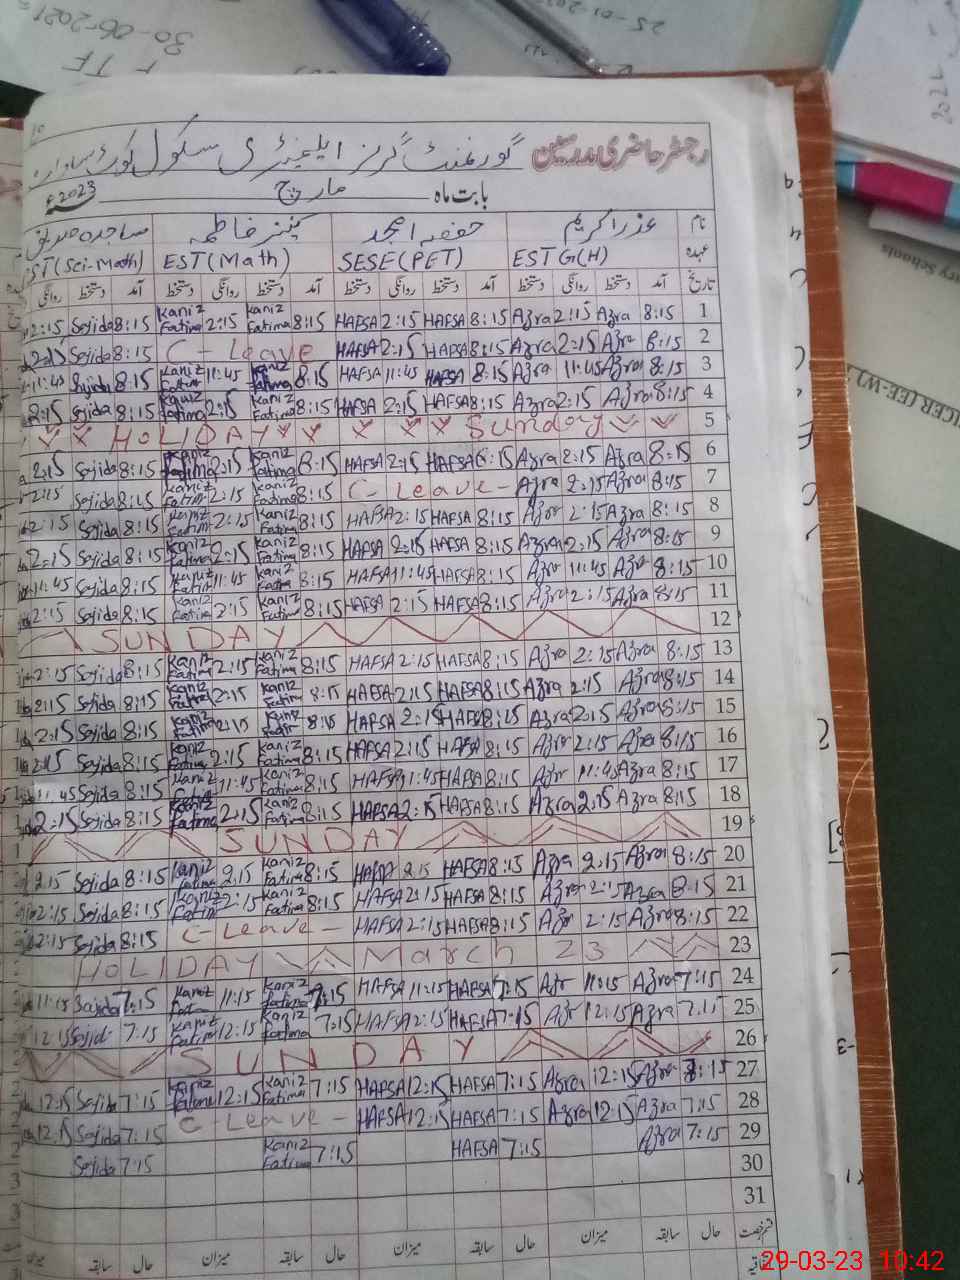 30-06-2021
25-01-20
رجسٹر حاضری مدرسین گورنمنٹ گرلز ایلیمنٹری سکول
بابت ماہ مارچ 2023ء
نام عذرا کریم حفصہ امجد کنیز فاطمہ ساجدہ
عہدہ ESTG(H) SESE(PET) EST(Math) EST(Sci-Math)
تاریخ آمد دستخط روانگی دستخط آمد دستخط روانگی دستخط آمد دستخط روانگی دستخط آمد دستخط روانگی
2:15 Sajida 8:15 Kaniz Fatima 2:15 Kaniz Fatima 8:15 HAFSA 2:15 HAFSA 8:15 Azra 2:15 Azra 8:15 1
2:15 Sajida 8:15 C-Leave HAFSA 2:15 HAFSA 8:15 Azra 2:15 Azra 8:15 2
11:45 Sajida 8:15 Kaniz Fatima 11:45 Kaniz Fatima 8:15 HAFSA 11:45 HAFSA 8:15 Azra 11:45 Azra 8:15 3
2:15 Sajida 8:15 Kaniz Fatima 2:15 Kaniz Fatima 8:15 HAFSA 2:15 HAFSA 8:15 Azra 2:15 Azra 8:15 4
HOLIDAY Sunday 5
2:15 Sajida 8:15 Kaniz Fatima 2:15 Kaniz Fatima 8:15 HAFSA 2:15 HAFSA 8:15 Azra 2:15 Azra 8:15 6
2:15 Sajida 8:15 Kaniz Fatima 2:15 Kaniz Fatima 8:15 C-Leave- Azra 2:15 Azra 8:15 7
2:15 Sajida 8:15 Kaniz Fatima 2:15 Kaniz Fatima 8:15 HAFSA 2:15 HAFSA 8:15 Azra 2:15 Azra 8:15 8
2:15 Sajida 8:15 Kaniz Fatima 2:15 Kaniz Fatima 8:15 HAFSA 2:15 HAFSA 8:15 Azra 2:15 Azra 8:15 9
11:45 Sajida 8:15 Kaniz Fatima 11:45 Kaniz Fatima 8:15 HAFSA 11:45 HAFSA 8:15 Azra 11:45 Azra 8:15 10
2:15 Sajida 8:15 Kaniz Fatima 2:15 Kaniz Fatima 8:15 HAFSA 2:15 HAFSA 8:15 Azra 2:15 Azra 8:15 11
SUNDAY 12
2:15 Sajida 8:15 Kaniz Fatima 2:15 Kaniz Fatima 8:15 HAFSA 2:15 HAFSA 8:15 Azra 2:15 Azra 8:15 13
2:15 Sajida 8:15 Kaniz Fatima 2:15 Kaniz Fatima 8:15 HAFSA 2:15 HAFSA 8:15 Azra 2:15 Azra 8:15 14
2:15 Sajida 8:15 Kaniz Fatima 2:15 Kaniz Fatima 8:15 HAFSA 2:15 HAFSA 8:15 Azra 2:15 Azra 8:15 15
2:15 Sajida 8:15 Kaniz Fatima 2:15 Kaniz Fatima 8:15 HAFSA 2:15 HAFSA 8:15 Azra 2:15 Azra 8:15 16
11:45 Sajida 8:15 Kaniz 11:45 Kaniz Fatima 8:15 HAFSA 11:45 HAFSA 8:15 Azra 11:45 Azra 8:15 17
2:15 Sajida 8:15 Kaniz Fatima 2:15 Kaniz Fatima 8:15 HAFSA 2:15 HAFSA 8:15 Azra 2:15 Azra 8:15 18
SUNDAY 19
2:15 Sajida 8:15 Kaniz Fatima 2:15 Kaniz Fatima 8:15 HAFSA 2:15 HAFSA 8:15 Azra 2:15 Azra 8:15 20
2:15 Sajida 8:15 Kaniz Fatima 2:15 Kaniz Fatima 8:15 HAFSA 2:15 HAFSA 8:15 Azra 2:15 Azra 8:15 21
2:15 Sajida 8:15 C-Leave- HAFSA 2:15 HAFSA 8:15 Azra 2:15 Azra 8:15 22
HOLIDAY March 23 23
11:15 Sajida 7:15 Kaniz 11:15 Kaniz Fatima 7:15 HAFSA 11:15 HAFSA 7:15 Azr 11:15 Azra 7:15 24
12:15 Sajid 7:15 Kaniz Fatima 12:15 Kaniz Fatima 7:15 HAFSA 12:15 HAFSA 7:15 Azr 12:15 Azra 7:15 25
SUNDAY 26
12:15 Sajida 7:15 Kaniz Fatima 12:15 Kaniz Fatima 7:15 HAFSA 12:15 HAFSA 7:15 Azra 12:15 Azra 7:15 27
12:15 Sajida 7:15 C-Leave- HAFSA 12:15 HAFSA 7:15 Azra 12:15 Azra 7:15 28
Sajida 7:15 Kaniz Fatima 7:15 HAFSA 7:15 Azra 7:15 29
30
31
قسم رخصت حال سابقہ میزان حال سابقہ میزان حال سابقہ میزان حال سابقہ
29-03-23 10:42